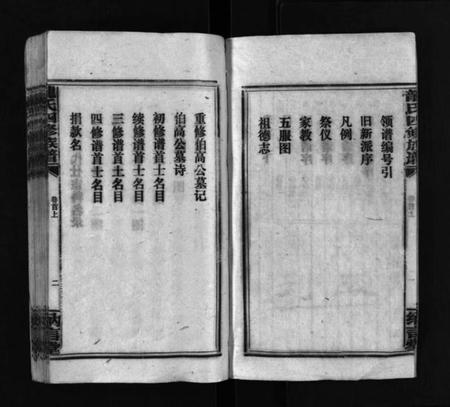 龍氏四修族譜
领谱编号引
旧新派序
凡例
祭仪
家教
五服图
祖德志
卷首上
一
重修伯高公墓记
伯高公墓诗
初修谱首士名目
续修谱首士名目
三修谱首士名目
四修谱首士名目
捐款名
龍氏四修族譜
卷首上
二